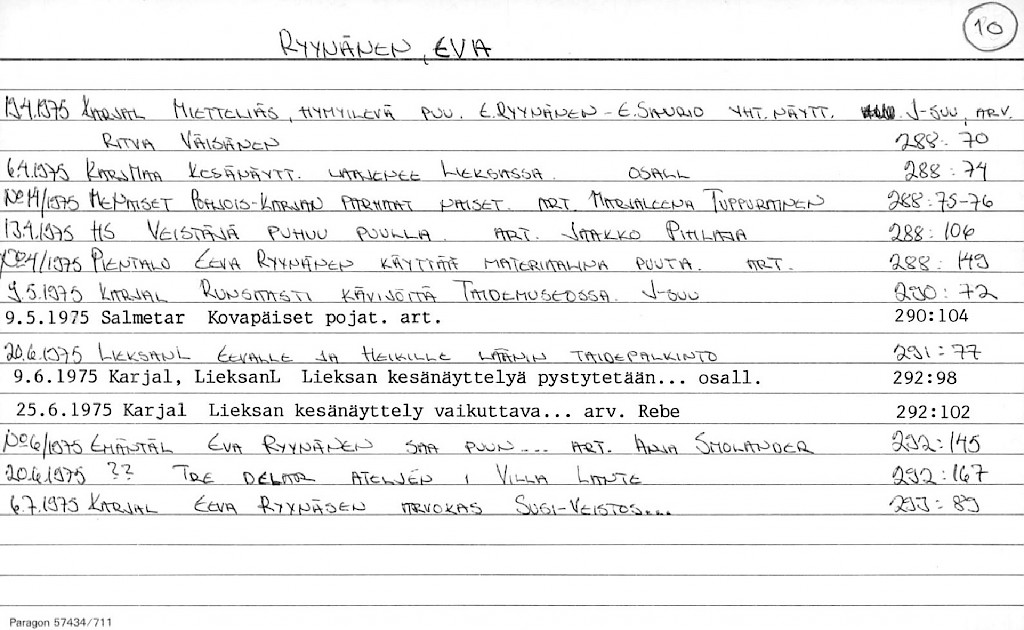 10
RYYNÄNEN, EVA
19.4.1975 KARJAL MIETTELIÄS, HYMYILEVÄ PUU. E.RYYNÄNEN - E.SAURIO YHT.NÄYTT. J-SUU, ARV.
RITVA VÄISÄNEN 288:70
6.4.1975 KARJMAA KESÄNÄYTT. LAAJENEE LIEKSASSA. OSALL 288:74
No 14/1975 MENAISET POHJOIS-KARJAN PARHAAT NAISET. ART. MARJALEENA TUPPURAINEN 288:75-76
13.4.1975 HS VEISTÄJÄ PUHUU PUULLA. ART. JAAKKO 288:106
No 4/1975 PIENTALO EEVA RYYNÄNEN KÄYTTÄÄ MATERIAALINA PUUTA. ART. 288:149
9.5.1975 KARJAL RUNSAASTI KÄVIJÖITÄ TAIDEMUSEOSSA. J-SUU 290:72
9.5.1975 Salmetar Kovapäiset pojat. art. 290:104
20.6.1975 LIEKSANL EEVALLE JA HEIKILLE LÄÄNIN TAIDEPALKINTO 291:77
9.6.1975 Karjal, LieksanL Lieksan kesänäyttelyä pystytetään... osall. 292:98
25.6.1975 Karjal Lieksan kesänäyttely vaikuttava... arv. Rebe 292:102
No 6/1975 EMÄNTÄL EVA RYYNÄNEN SAA PUUN... ART. ANJA SMOLANDER 292:145
20.6.1975 ?? TRE DELAR ATELJÉN I VILLA LANTE 292:167
6.7.1975 KARJAL EEVA RYYNÄSEN ARVOKAS SUSI-VEISTOS... 293:89
Paragon 57434/711